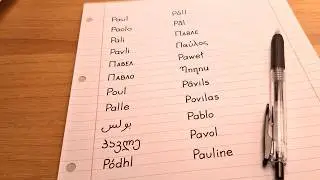 Paul
Paolo
Páli
Pavli
Павел
Павло
Poul
Palle
بولس
პავლე
Pádhl
Páll
Pál
Павле
Παύλος
Paweł
Պողոս
Pāvils
Povilas
Pablo
Pavol
Pauline